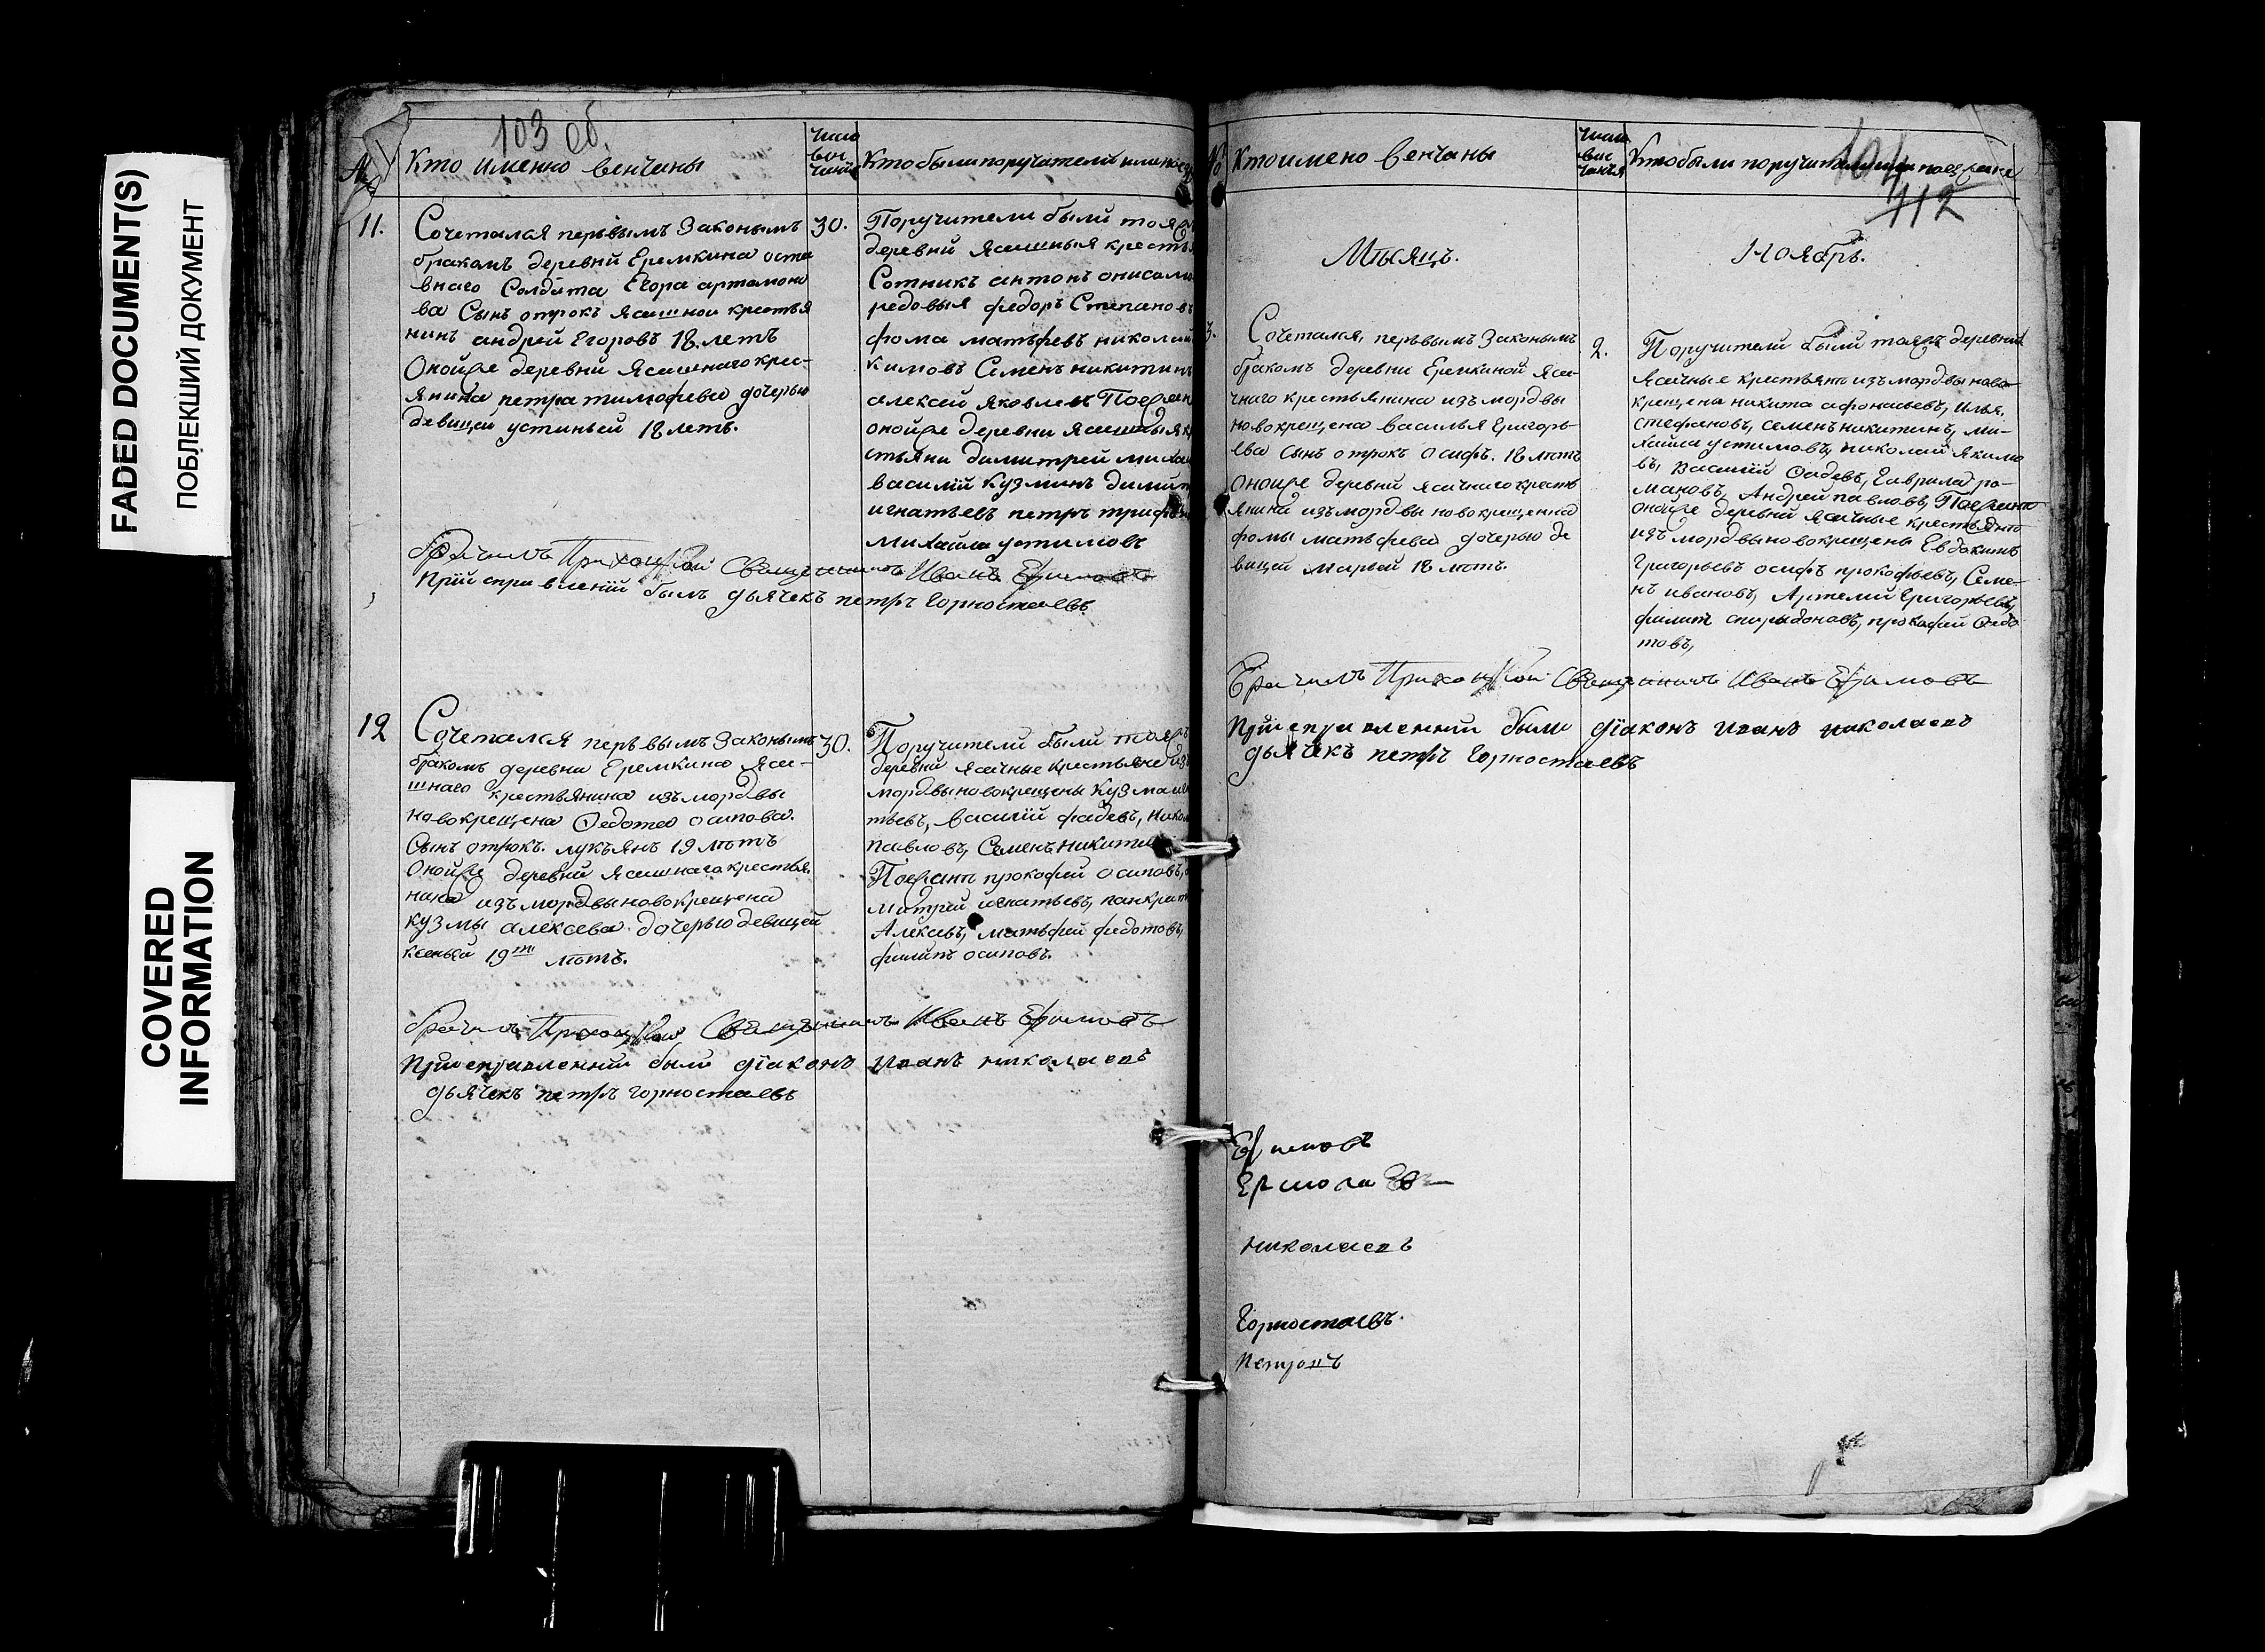 FADED DOCUMENT(S)
ПОБЛЕКШИЙ ДОКУМЕНТ
COVERED
INFORMATION
103 об.
№
Кто именно венчаны
Кто были поручители или
11.
Сочетался первымъ Законымъ
бракомъ деревни Еремкина оста
внаго Солдата Егора артамоно
ва Сынъ отрокъ Ясашной крестья
нинъ андрей Егоровъ 18. летъ
Оной же деревни Ясашнаго крес-
янина петра тимофева дочерью
девицей устиньей 18 летъ.
30.
Поручители были тояж
деревни Ясашныя кресть
Сотникъ антонъ
редовыя федоръ Степановъ
фома матьфевъ николай
кимовъ Семенъ никитинъ
алексей яковлевъ Поезжан
оной же деревни ясашныя к
стьяни димитрей миха
василій кузминъ димит
игнатьевъ петръ триф
михайла устимовъ
брачилъ Приходской Священникъ Иванъ Ефимовъ
При исправленіи былъ дьячекъ петръ Горностаевъ
12
Сочетался первымъ Законымъ
бракомъ деревни Еремкина Яса-
шнаго крестьянина изъ мордвы
новокрещена Федота осипова.
Сынъ отрокъ. лукъянъ 19 лѣтъ
Оной же деревни Ясашнаго крестья
нина изъ мордвы новокрещена
кузмы алексева дочерью девицей
ксеньей 19ти лѣтъ.
30.
Поручители были тояж
деревни Ясачные крестьяне изъ
мордвы новокрещены Кузма
тьевъ, василій фадевъ, Никол
павловъ, Семенъ никити
Поезжанѣ прокофей осиповъ,
митрей игнатьевъ, панкрат
Алексевъ, матьфей федотовъ,
филипъ осиповъ.
брачилъ Приходской Священникъ Иванъ Ефимовъ
При исправленіи были діаконъ Иванъ николаевъ
дьячекъ петръ горностаевъ
Кто имено венчаны
Кто были поручители или поезжаня
104
112
Мѣсяцъ.
Ноябрь.
3.
Сочетался, первымъ Законымъ
бракомъ деревни Еремкиной Яса-
чнаго крестьянина изъ мордвы
новокрещена василья Григорь-
ева сынъ отрокъ осифъ. 18 лѣтъ
Оной же деревни ясачнаго кресть
янина изъ мордвы новокрещенна
фомы матьфева дочерью де
вицей марьей 18 лѣтъ.
2.
Поручители были тояжъ деревни
ясачные крестьянѣ изъ мордвы ново-
крещена никита афонасьевъ, илья,
стефановъ, семенъ никитинъ, ми-
хайла устимовъ, николай якимо
въ, василій Фадевъ, Гаврила ро-
мановъ, Андрей павловъ, Поезжанѣ
оной же деревни ясачные крестьянѣ
изъ мордвы новокрещены Евдокимъ
Григорьевъ осифъ прокофьевъ, Семе-
нъ ивановъ, Артемий Григорьевъ,
филипъ спиридоновъ, прокофей Федо
товъ,
Брачилъ Приходской Священникъ Иванъ Ефимовъ
При исправленіи были діаконъ Иванъ николаевъ
дьячекъ петръ Горностаевъ
Ефимовъ
николаевъ
Горностаевъ.